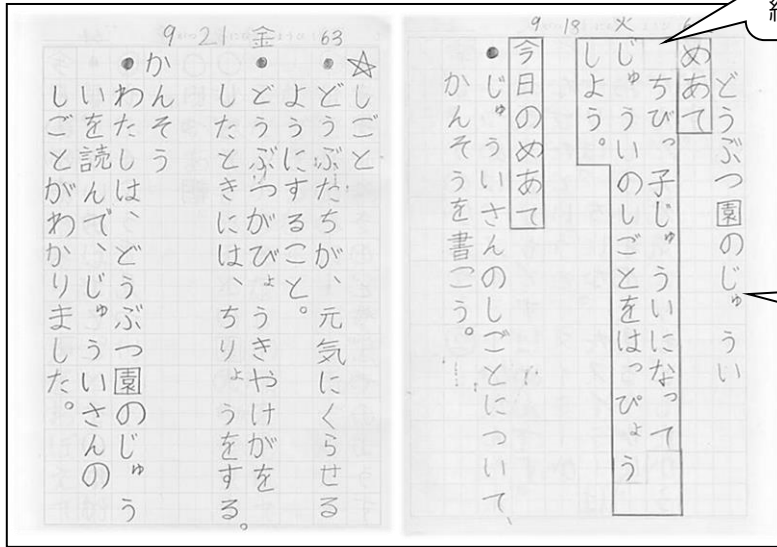 9 18 火 6
どうぶつ園のじゅうい
めあて
ちびっ子じゅういになって
じゅういのしごとをはっぴょう
しよう。
今日のめあて
●じゅういさんのしごとについて、
かんそうを書こう。
9 21 金 63
☆しごと
●どうぶたちが、元気にくらせる
ようにすること。
●どうぶつがびょうきやけがを
したときには、ちりょうをする。
かんそう
●わたしは、どうぶつ園のじゅう
いを読んで、じゅういさんの
しごとがわかりました。